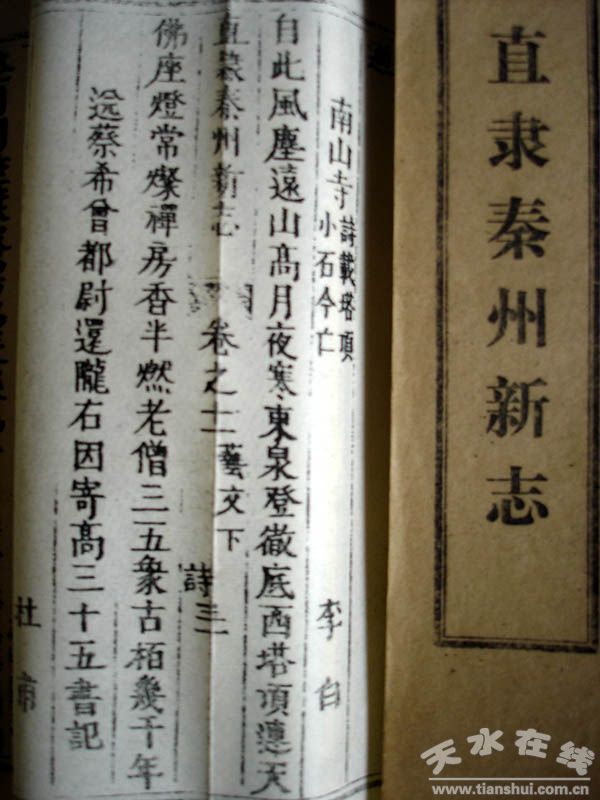 直隶秦州新志
南山寺 詩載塔頂小石今亡 李白
自此風塵遠山高月夜寒東泉登徹底西塔頂連天
直隸秦州新志 卷之十二 藝文下 詩三
佛座燈常燦禪房香半燃老僧三五衆古栢幾千年
送蔡希曾都尉還隴右因寄高三十五書記
杜甫
天水在线
www.tianshui.com.cn